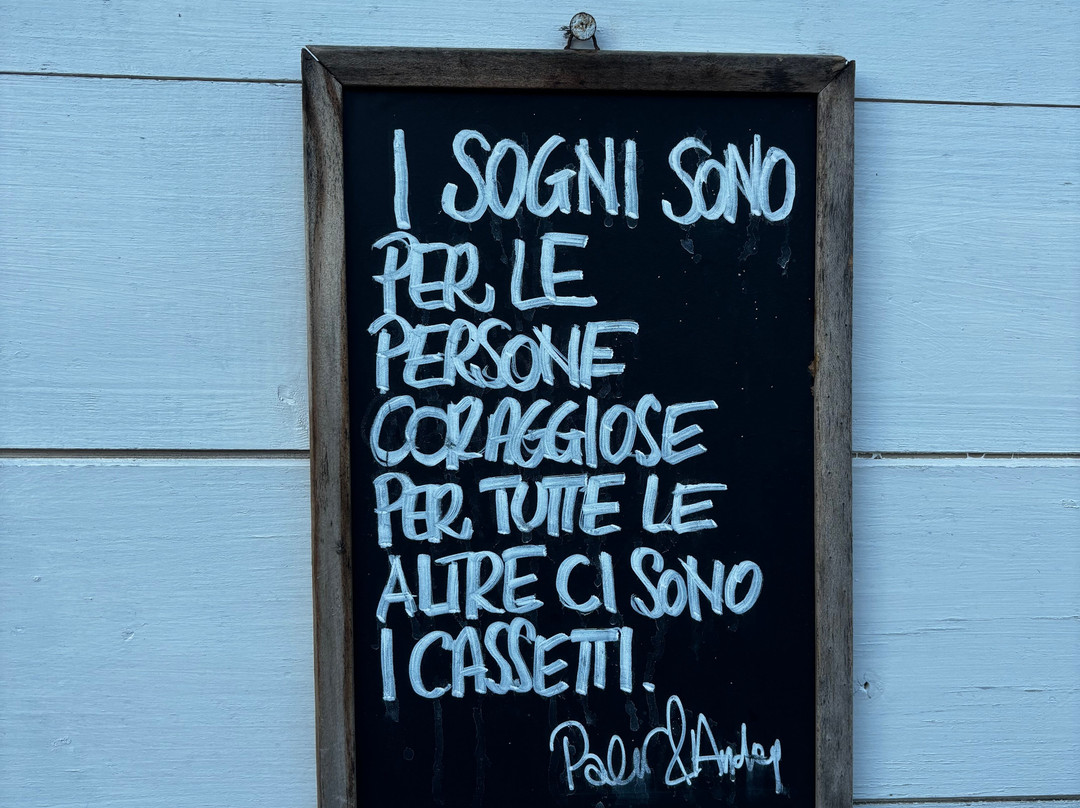 I SOGNI SONO
PER LE
PERSONE
CORAGGIOSE
PER TUTTE LE
ALTRE CI SONO
I CASSETTI.